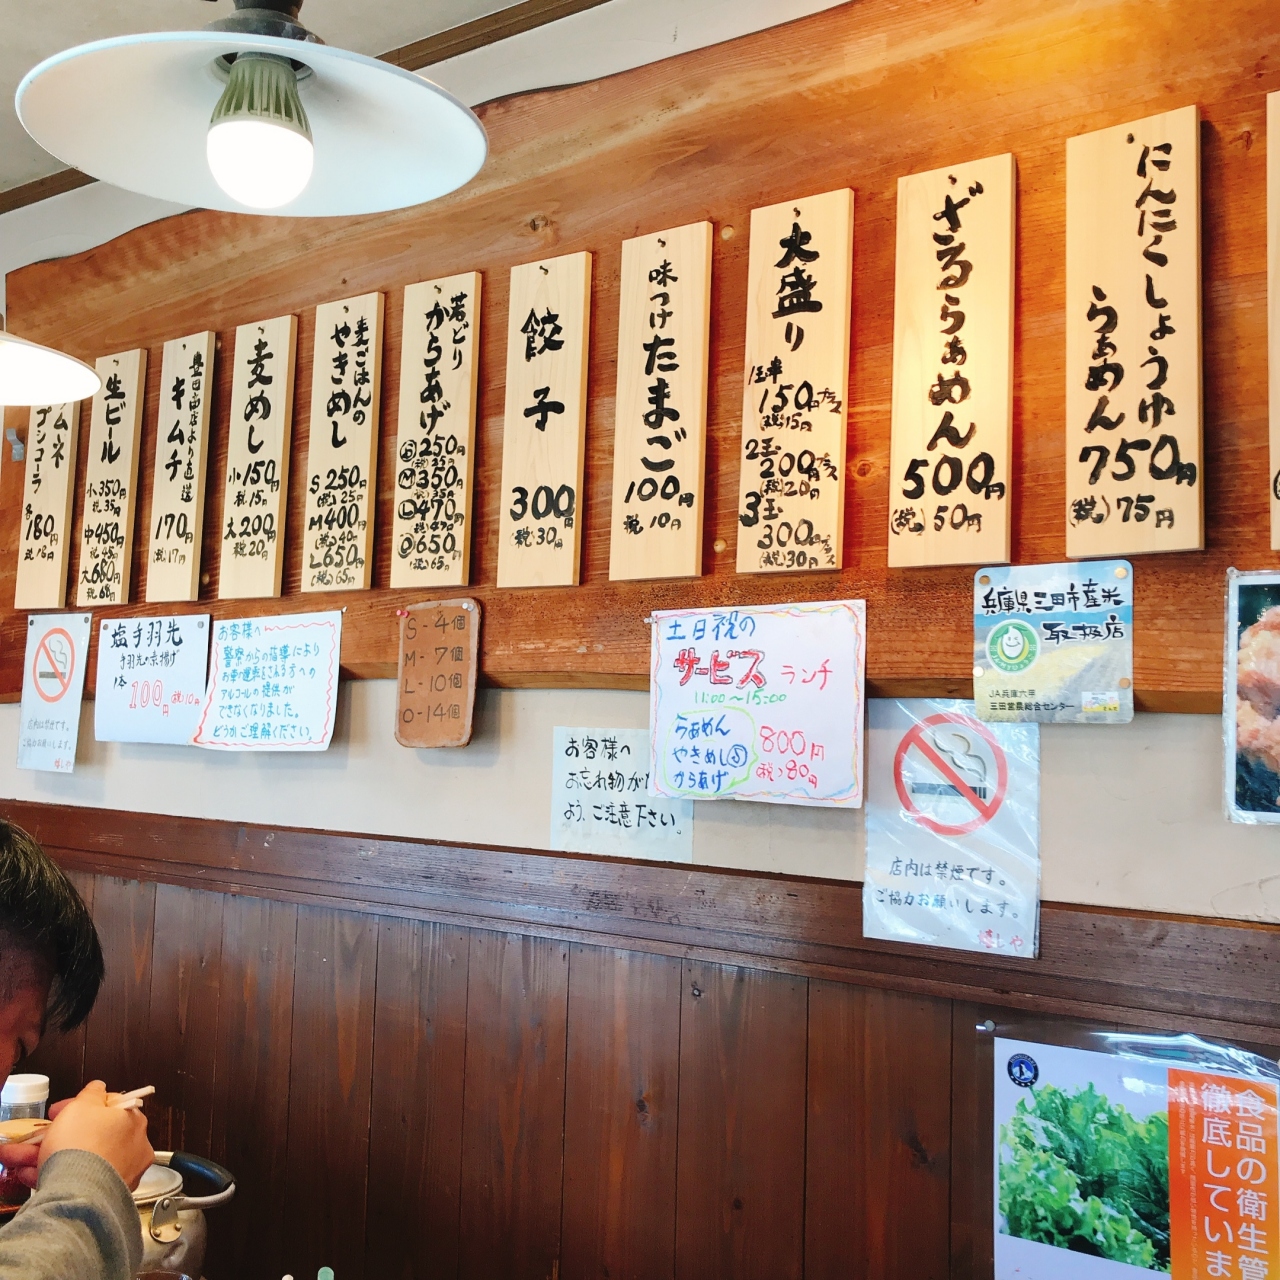 にんにくしょうゆ
らぁめん
750円
(税)75円
ざるらぁめん
500円
(税)50円
大盛り
1玉半
150円プラス
(税)15円
2玉
200円プラス
(税)20円
3玉
300円プラス
(税)30円
味つけたまご
100円
税10円
餃子
300円
(税)30円
若どり
からあげ
Ⓢ250円
(税)25円
Ⓜ350円
(税)35円
Ⓛ470円
(税)47円
Ⓞ650円
(税)65円
麦ごはんの
やきめし
S250円
(税)25円
M400円
(税)40円
L650円
(税)65円
麦めし
小150円
税15円
大200円
税20円
豊田商店より直送
キムチ
170円
(税)17円
生ビール
小350円
税35円
中450円
税45円
大680円
税68円
ムネ
プシコーラ
各180円
税18円
店内は禁煙です。
ご協力お願いします。
塩手羽先
手羽先の素揚げ
1本
100円(税)10円
お客様へ
警察からの指導により
お車の運転をされる方への
アルコールの提供が
できなくなりました。
どうかご理解ください。
S-4個
M-7個
L-10個
O-14個
お客様へ
お忘れ物が
よう、ご注意下さい。
土日祝の
サービスランチ
11:00〜15:00
らぁめん
やきめしⓈ
からあげ
800円
(税)80円
兵庫県三田市産米
取扱店
JA兵庫六甲
三田営農総合センター
店内は禁煙です。
ご協力お願いします。
食品の衛生管
徹底していま